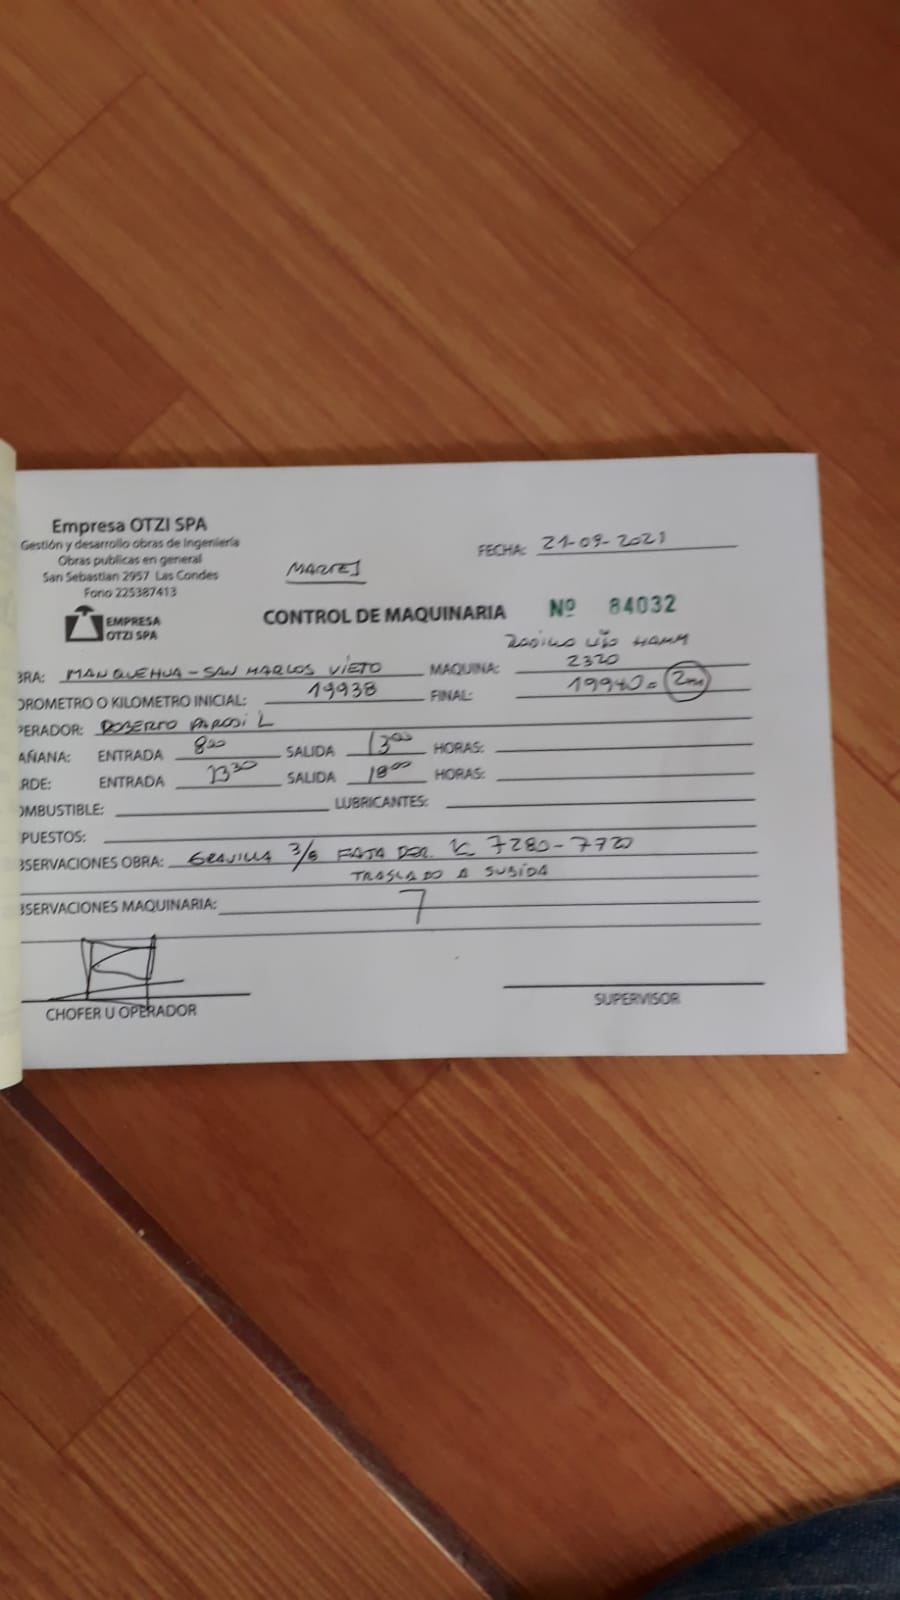 Empresa OTZI SPA
Gestión y desarrollo obras de Ingeniería
Obras publicas en general
San Sebastian 2957 Las Condes
Fono 225387413
EMPRESA
OTZI SPA
MARTES
FECHA: 21-09-2021
CONTROL DE MAQUINARIA Nº 84032
HAMM
BRA: MANQUEHUA - SAN MARCOS VIETO MAQUINA: 2320
OROMETRO O KILOMETRO INICIAL: 19938 FINAL: 19940 =
PERADOR: ROBERTO PARODI L
AÑANA: ENTRADA 8 00 SALIDA 13 00 HORAS:
RDE: ENTRADA 13 30 SALIDA 18 00 HORAS:
OMBUSTIBLE: LUBRICANTES:
PUESTOS:
BSERVACIONES OBRA: GRAVILLA 3/8 FAJA DER. K 7280-7720
TRASLADO A SUBIDA
BSERVACIONES MAQUINARIA:
CHOFER U OPERADOR
SUPERVISOR